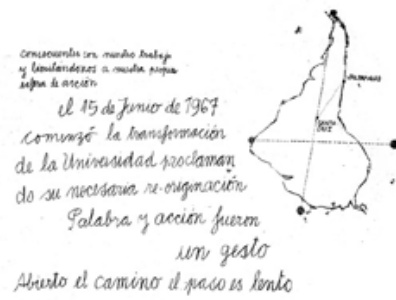 consecuentes con nuestro trabajo
y vinculándonos a nuestra propia
esfera de acción
el 15 de Junio de 1967
comenzó la transformación
de la Universidad proclaman
do su necesaria re-originación
Palabra y acción fueron
un gesto
Abierto el camino el paso es lento
SANTA
CRUZ